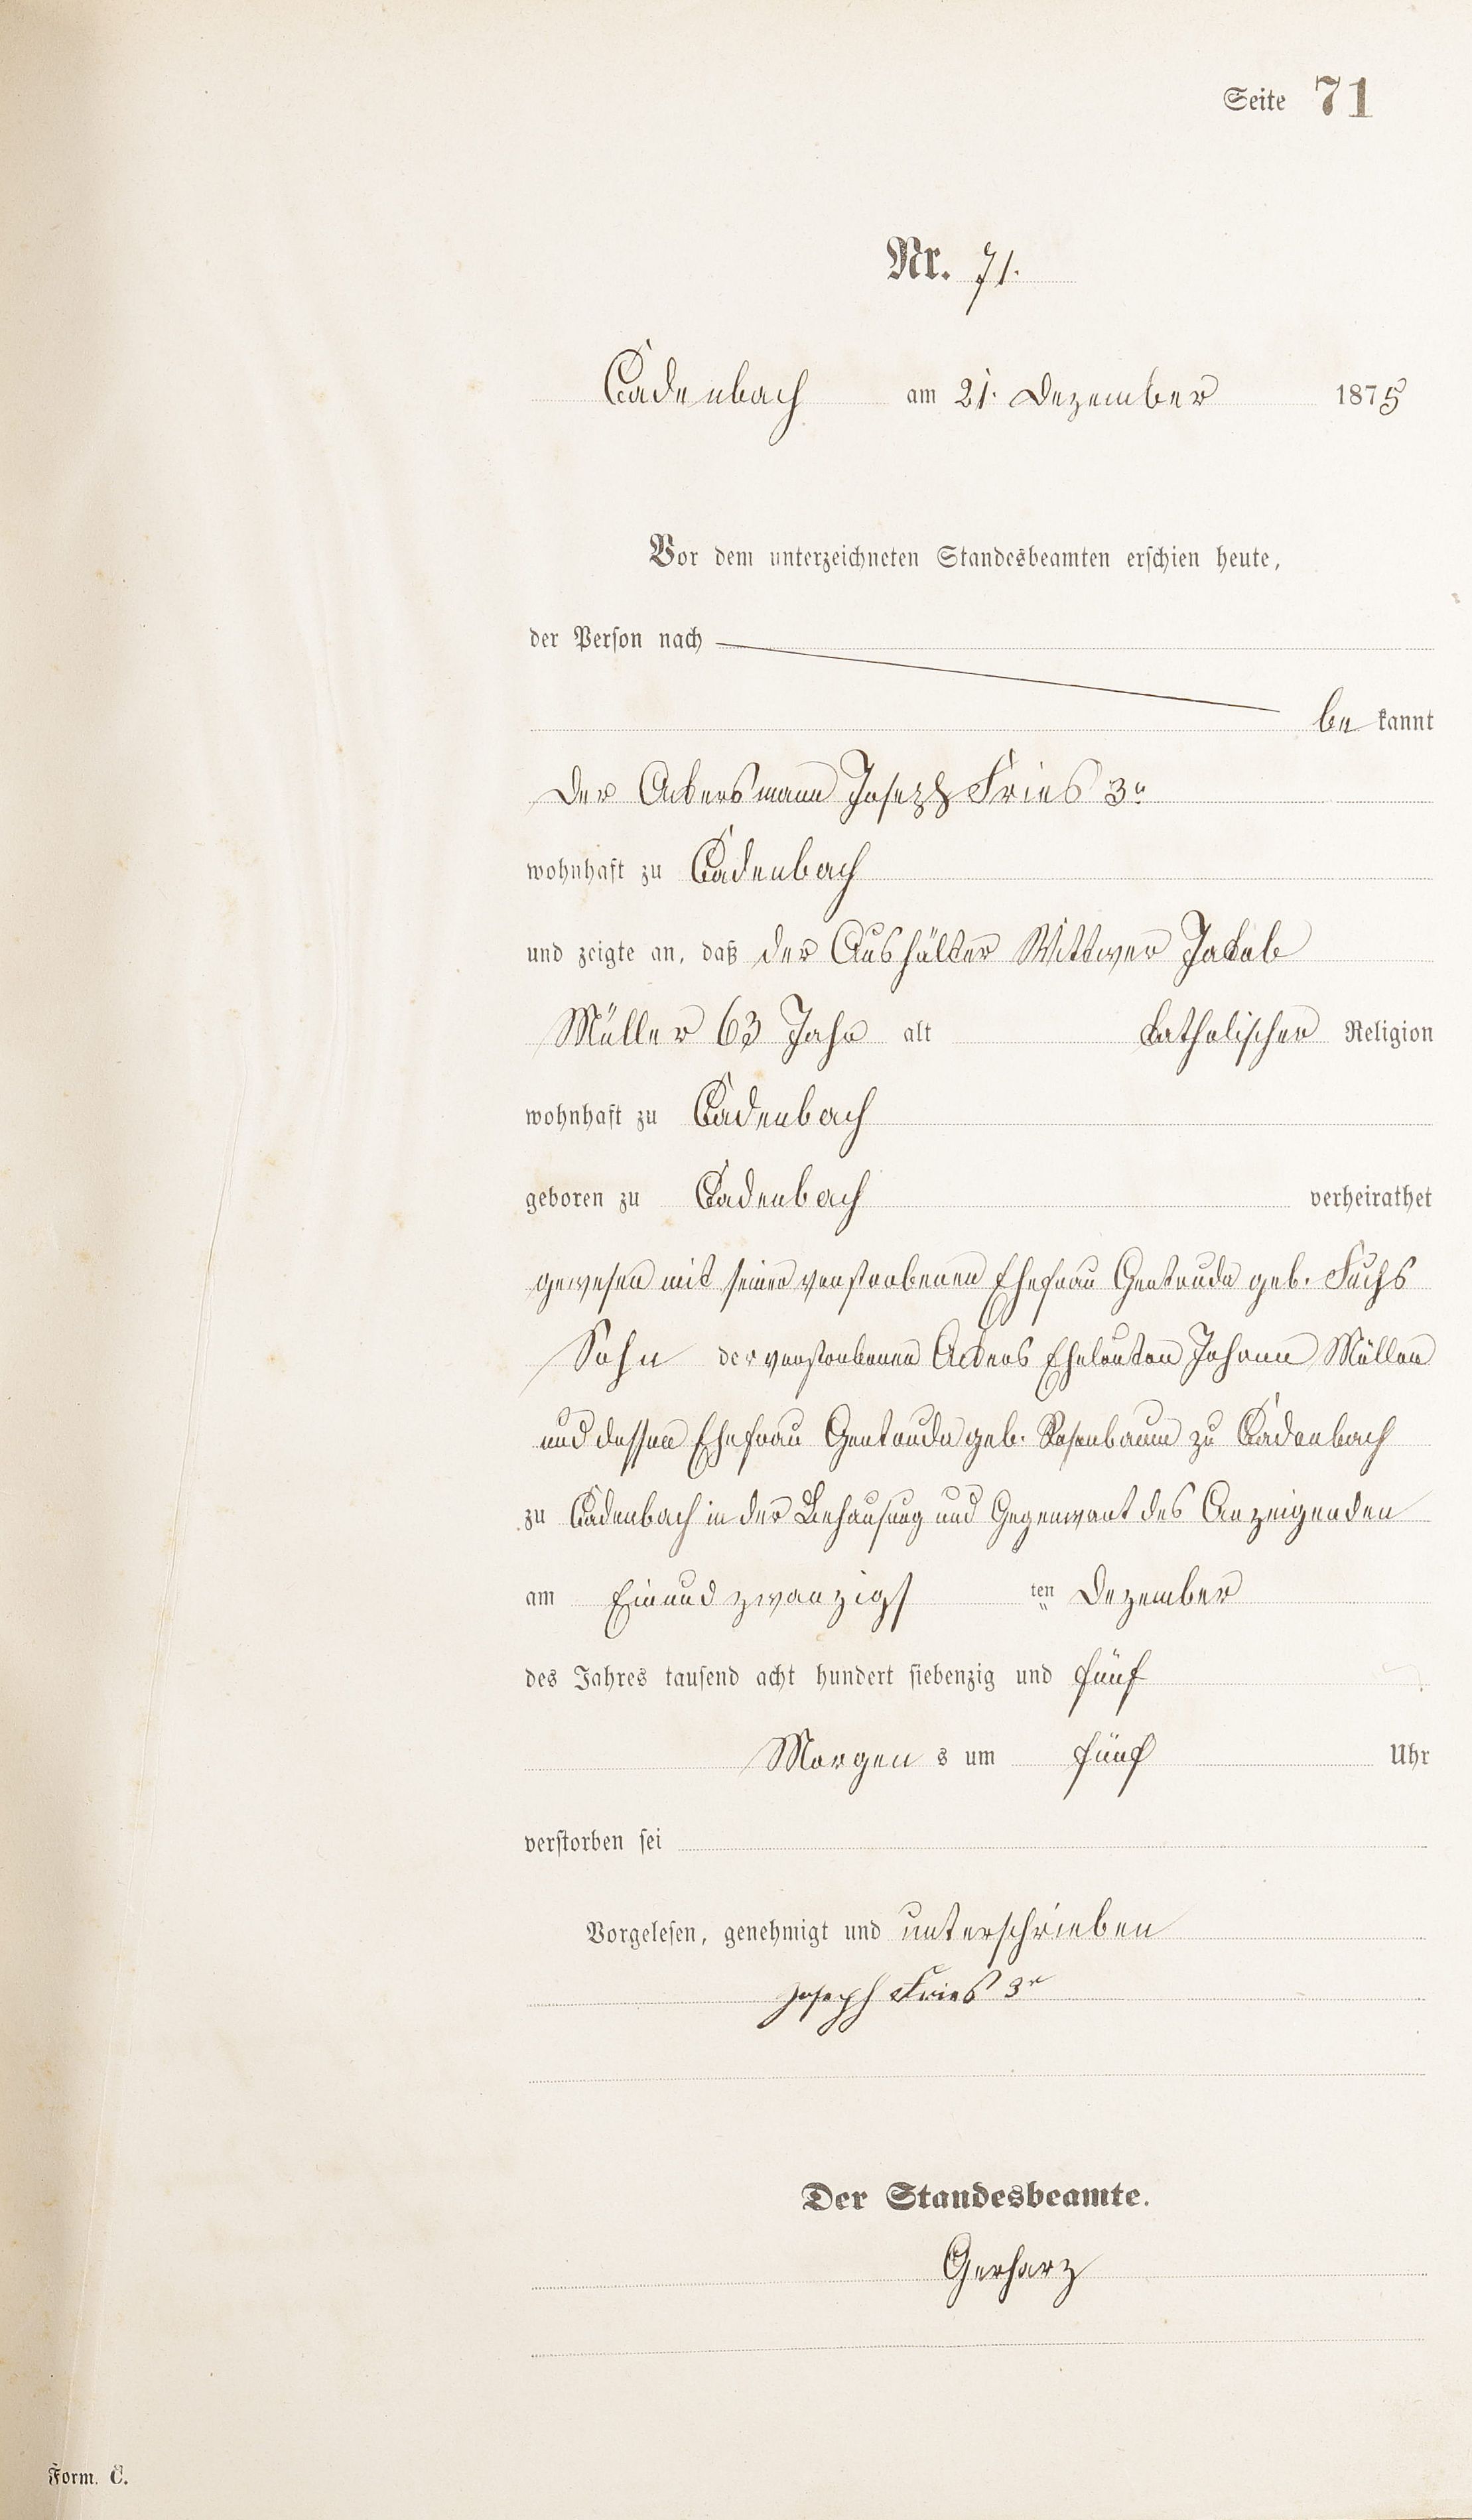 Seite 71
Nr. 71.
Cadenbach am 21. Dezember 1875
Vor dem unterzeichneten Standesbeamten erschien heute,
der Person nach
be kannt
der Ackersmann Joseph Fries 3r
wohnhaft zu Cadenbach
und zeigte an, daß der Aushälter Wittwer Jakob
Müller 63 Jahr alt katholischer Religion
wohnhaft zu Cadenbach
geboren zu Cadenbach verheirathet
gewesen mit seiner verstorbenen Ehefrau Gertrude geb. Fuchs
Sohn der verstorbenen Ackers Eheleuten Johann Müller
und dessen Ehefrau Gertrude geb. Rosenbaum zu Cadenbach
zu Cadenbach in der Behausung und Gegenwart des Anzeigenden
am Einundzwanzigs ten Dezember
des Jahres tausend acht hundert siebenzig und fünf
Morgen s um fünf Uhr
verstorben sei
Vorgelesen, genehmigt und unterschrieben
Joseph Fries 3r
Der Standesbeamte.
Gerharz
Form. C.